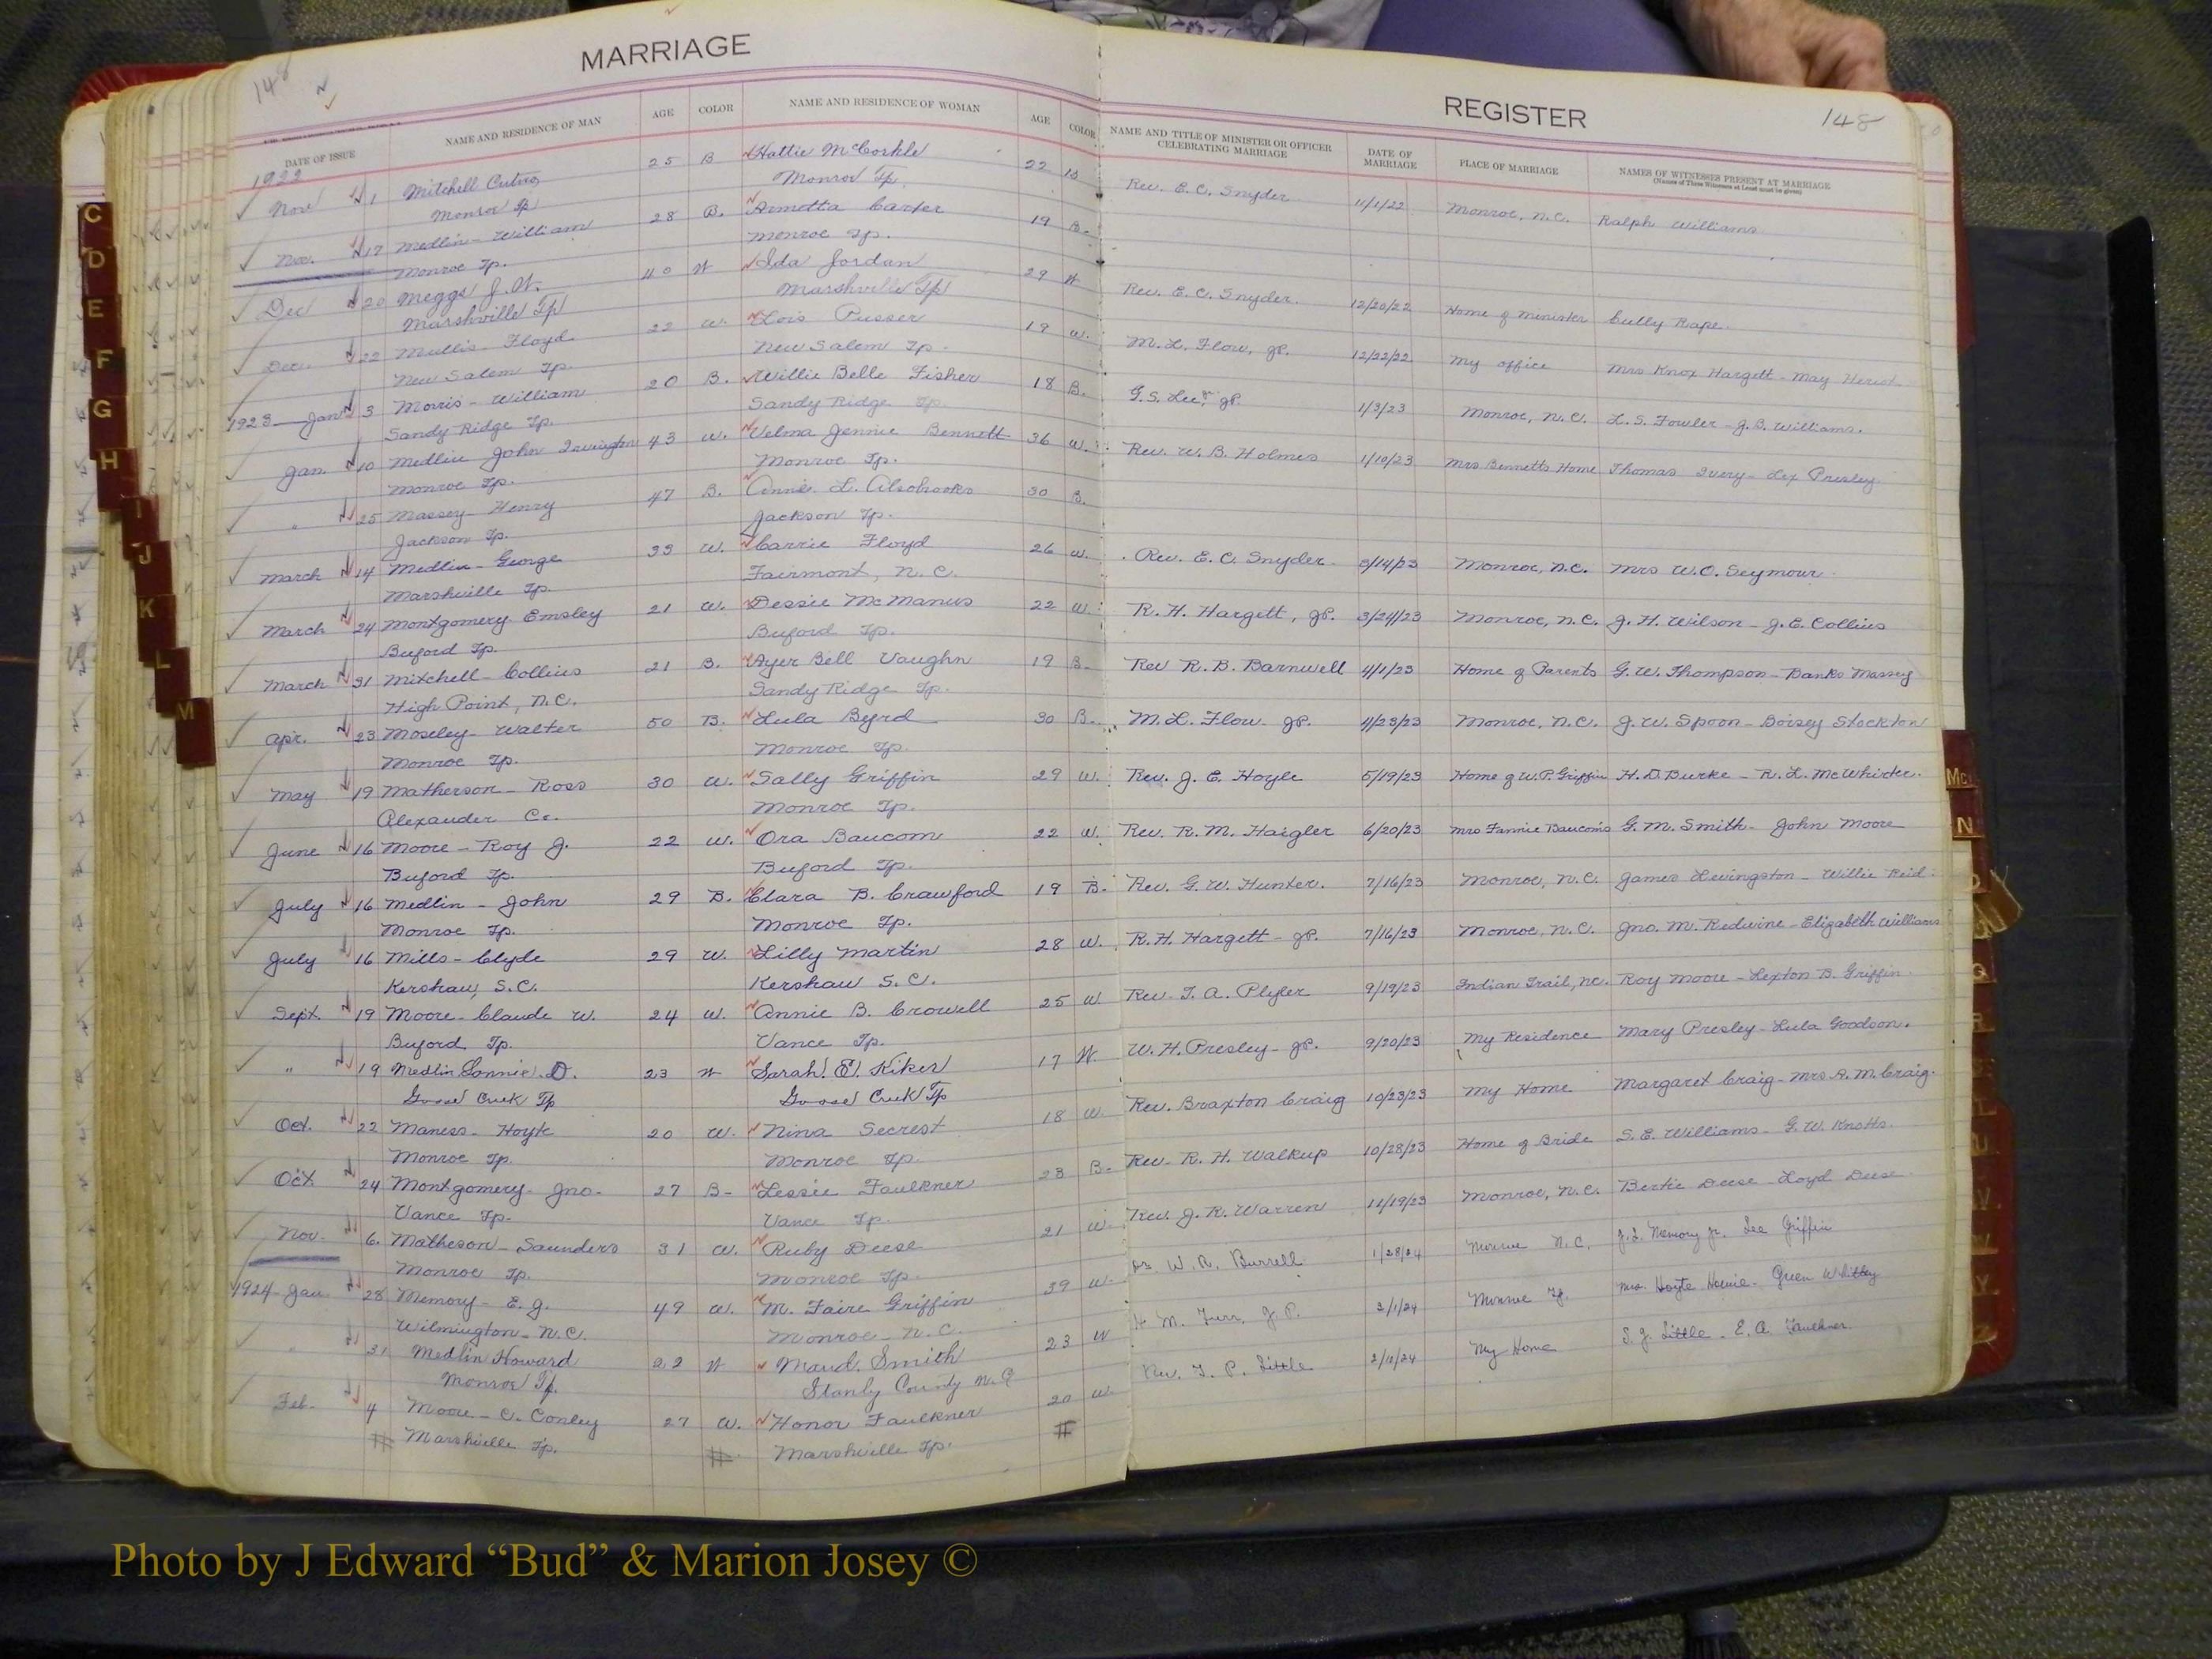 148
MARRIAGE
DATE OF ISSUE NAME AND RESIDENCE OF MAN AGE COLOR NAME AND RESIDENCE OF WOMAN AGE COLOR
REGISTER
148
NAME AND TITLE OF MINISTER OR OFFICER CELEBRATING MARRIAGE DATE OF MARRIAGE PLACE OF MARRIAGE NAMES OF WITNESSES PRESENT AT MARRIAGE
(Names of Three Witnesses at Least must be given)
1922
Nov 1 Mitchell 25 B Hattie McCorkle 22 B Rev. E. C. Snyder 11/1/22 Monroe, N.C. Ralph Williams
Monroe Tp Monroe Tp.
Nov. 17 Medlin - William 28 B. Armetta Carter 19 B.
Monroe Tp. Monroe Tp.
Dec 20 Meggs J. W. 40 W Ida Jordan 29 W Rev. E. C. Snyder. 12/20/22 Home of Minister Cully Rape.
Marshville Tp Marshville Tp
Dec. 22 Mullis - Floyd 22 W. Lois Pusser 19 W. M. L. Flow, JP. 12/22/22 My office Mrs Knox Hargett - May
New Salem Tp. New Salem Tp.
1923 Jan 3 Morris - William 20 B. Willie Belle Fisher 18 B. G. S. Lee, JP. 1/3/23 Monroe, N.C. L. S. Fowler - J. B. Williams.
Sandy Ridge Tp. Sandy Ridge Tp.
Jan. 10 Medlin John 43 W. Velma Jennie Bennett 36 W. Rev. W. B. Holmes 1/10/23 Mrs Bennetts Home Thomas Ivery - Lex Presley
Monroe Tp. Monroe Tp.
" 25 Massey - Henry 47 B. Annie L. Alsobrooks 30 B.
Jackson Tp. Jackson Tp.
March 14 Medlin - George 33 W. Carrie Floyd 26 W. Rev. E. C. Snyder 3/14/23 Monroe, N.C. Mrs W. O. Seymour
Marshville Tp. Fairmont, N.C.
March 24 Montgomery Emsley 21 W. Dessie McManus 22 W. R. H. Hargett, JP. 3/24/23 Monroe, N.C. J. H. Wilson - J. E. Collins
Buford Tp. Buford Tp.
March 31 Mitchell - Collins 21 B. Ayer Bell Vaughn 19 B. Rev R. B. Barnwell 4/1/23 Home of Parents G. W. Thompson - Banks Massey
High Point, N.C. Sandy Ridge Tp.
Apr. 23 Moseley - Walter 50 B. Lula Byrd 30 B. M. L. Flow - JP. 4/23/23 Monroe, N.C. J. W. Spoon - Boisey Stockton
Monroe Tp. Monroe Tp.
May 19 Matherson - Ross 30 W. Sally Griffin 29 W. Rev. J. E. Hoyle 5/19/23 Home of W. P. Griffin H. D. Burke - R. L. McWhirter.
Alexander Co. Monroe Tp.
June 16 Moore - Roy J. 22 W. Ora Baucom 22 W. Rev. R. M. Haigler 6/20/23 Mrs Fannie Baucoms G. M. Smith - John Moore
Buford Tp. Buford Tp.
July 16 Medlin - John 29 B. Clara B. Crawford 19 B. Rev. G. W. Hunter. 7/16/23 Monroe, N.C. James Livingston - Willie Reid
Monroe Tp. Monroe Tp.
July 16 Mills - Clyde 29 W. Lilly Martin 28 W. R. H. Hargett - JP. 7/16/23 Monroe, N.C. Jno. M. Redwine - Elizabeth Williams
Kershaw, S.C. Kershaw S.C.
Sept. 19 Moore - Claude W. 24 W. Annie B. Crowell 25 W Rev. T. A. Plyler 9/19/23 Indian Trail, NC. Roy Moore - Lexton B. Griffin
Buford Tp. Vance Tp.
" 19 Medlin Lonnie D. 23 W Sarah E. Kiker 17 W. W. H. Presley - JP. 9/20/23 My Residence Mary Presley - Lula Goodson.
Goose Creek Tp Goose Creek Tp
Oct. 22 Maness - Hoyle 20 W. Nina Secrest 18 W Rev. Braxton Craig 10/23/23 My Home Margaret Craig - Mrs A. M. Craig.
Monroe Tp. Monroe Tp.
Oct. 24 Montgomery - Jno. 27 B- Lessie Faulkner 23 B- Rev. R. H. Walkup 10/28/23 Home of Bride S. E. Williams - G. W. Knotts.
Vance Tp. Vance Tp.
Nov. 6. Matheson - Saunders 31 W. Ruby Deese 21 W. Rev. J. R. Warren 11/19/23 Monroe, N.C. Bertie Deese - Loyd Deese
Monroe Tp. Monroe Tp.
1924 Jan 28 Memory - E. J. 49 W. M. Faire Griffin 39 W. Dr W. R. Burrell 1/28/24 Monroe N.C. Memory Jr. Lee Griffin
Wilmington - N.C. Monroe - N.C.
" 31 Medlin Howard 22 W Maud. Smith 23 W M. Furr, J.P. 2/1/24 Monroe Tp. Mrs. Hoyte - Green Whitley
Monroe Tp. Stanly County N.C
Feb. 4 Moore - C. Conley 27 W. Honor Faulkner 20 W. Rev. T. P. Little 2/ /24 My Home S. J. Little - E. A. Faulkner.
Marshville Tp. Marshville Tp.
C
D
E
F
G
H
I
J
K
L
M
Mc
N
Q
R
Photo by J Edward “Bud” & Marion Josey ©